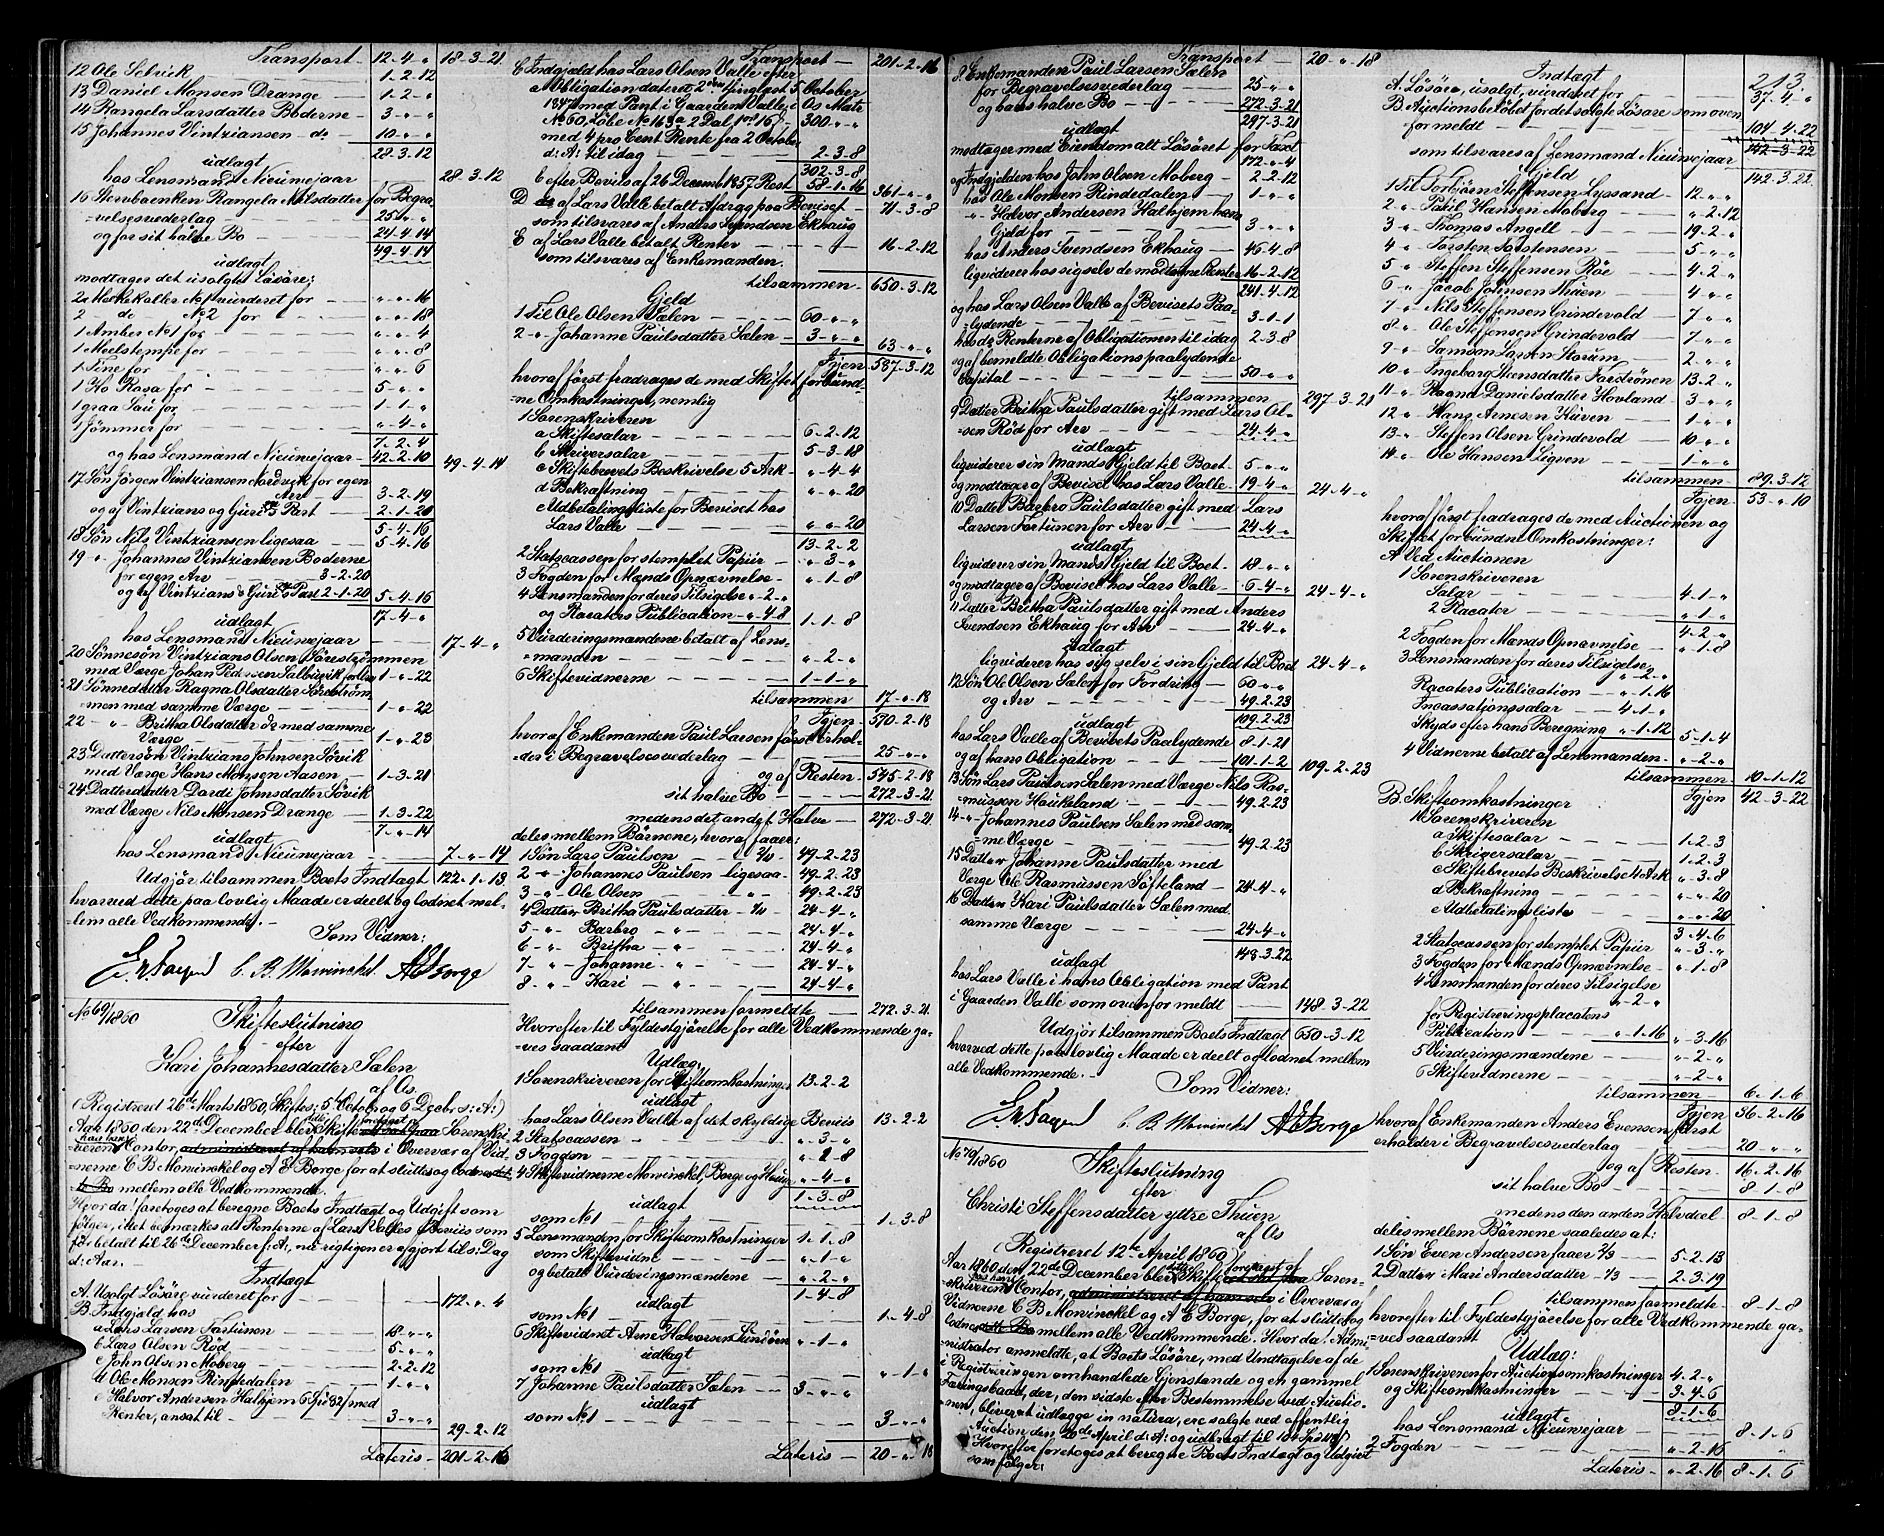 Transport 12-4-" 18-3-21
12 Ole Selvik 1-2-12
13 Daniel Monsen Drange 1-2-"
14 Rangela Larsdatter Boderne 3-"-"
15 Johannes Vintziansen do 10-"-"
28-3-12
udlagt
hos Lensmand Nieuwejaar 28-3-12
16 Stervboenken Rangela Nilsdatter for Begra-
velsesvederlag 25-"-"
og for sit halve Bo 24-4-14
49-4-14
udlagt
modtager det usolgte Løsøre:
2 Melkekoller No 1 vurderet for "-"-16
2 do No 2 for "-"-18
1 Amber No 1 for "-"-4
1 Meelstempe for "-"-8
1 Tine for "-"-6
1 Ko Rosa for 5-"-"
1 graa Sau for 1-1-"
1 Jømmer for "-4-"
7-2-4
og hos Lensmand Nieuwejaar 42-2-10 49-4-14
17 Søn Jørgen Vintziansen Nordvik for egen
Arv 3-2-19
og af Vintzians og Guris Part 2-1-20
5-4-16
18 Søn Nils Vintziansen ligesaa 5-4-16
19 " Johannes Vintziansen Boderne
for egen Arv 3-2-20
og af Vintzians & Guris Part 2-1-20 5-4-16
17-4-"
udlagt
hos Lensmand Nieuwejaar 17-4-"
20 Sønnesøn Vintzians Olsen Sørestrømmen
med Værge Johan Pedersen 1-"-22
21 Sønnedatter Ragna Olsdatter Sørestrøm-
men med samme Værge 1-"-22
22 " Britha Olsdatter do med samme
Værge 1-"-23
23 Dattersøn Vintzians Johnsen Søvik
med Værge Hans Monsen Aasen 1-3-21
24 Datterdatter Dordi Johnsdatter Søvik
med Værge Nils Monsen Drange 1-3-22
7-"-14
udlagt
hos Lensmand Nieuwejaar 7-"-14
Udgjør tilsammen Boets Indtægt 122-1-13
hvorved dette paa lovlig Maade er deelt og lodnet mel-
lem alle Vedkommende.
Som Vidner:
C. B. Mowinckel A E Borge
No 69/1860 Skifteslutning
efter
Kari Johannesdatter Sælen
af Os
(Registreret 26de Marts 1860, Skiftes: 5 October og 6 Decbr s: A:)
Aar 1860 den 22de December blev Skifte foretaget paa Sorenskri-
verens Contor, administreret af ham selv i Overvær af Vid-
nerne C B Mowinckel og A E Borge for at slutte og lodne det-
te Bo mellem alle Vedkommende.
Hvor da foretoges at beregne Boets Indtægt og Udgift som
følger, idet bemærkes att Renterne af Lars Valles Beviis som
før betalt til 26de December f: A:, nu rigtigen er afgjort til s: Dag
d: Aar.
Indtægt
A. Usolgt Løsøre vurderet for 172-"-4
B. Indgjæld hos
a Lars Larsen Fortunen 18-"-"
b Lars Olsen Rød 5-"-"
c John Olsen Moberg 2-2-12
d Ole Monsen Rindedalen 1-"-"
e Halvor Andersen Halhjem med
Renter, ansat til 3-"-"
29-2-12
Lateris 201-2-16

Transport 201-2-16
C Indgjæld hos Lars Olsen Valle efter
a Obligation dateret 2den tinglæst 5 October
1847 med Pant i Gaarden Valle i Os Matr
No 60, Løbe No 163a 2 Dal 1 ort 16 ß 300-"-"
med 4 pro Cent Rente fra 2 October
d: A: til idag 2-3-8
302-3-8
b efter Beviis af 26 Decemb 1857 Rest 58-1-16 361-"-"
D af Lars Valle betalt Afdrag paa Beviset 71-3-8
som tilsvares af Anders Svendsen Ekhaug
E af Lars Valle betalt Renter 16-2-12
som tilsvares af Enkemanden.
tilsammen 650-3-12
Gjeld
1 Til Ole Olsen Sælen 60-"-"
2 " Johanne Paulsdatter Sælen 3-"-" 63-"-"
Igjen 587-3-12
hvoraf først fradrages de med Skiftet forbund-
ne Omkostninger, nemlig
1 Sorenskriveren
a Skiftesalar 6-2-12
b Skriversalar 5-3-18
c Skiftebrevets Beskrivelse 5 Ark "-4-4
d Bekræftning "-"-20
e Udbetalingsliste for Beviset hos
Lars Valle "-"-20
13-2-2
2 Statscassen for stemplet Papiir "-3-"
3 Fogden for Mænds Opnævnelse "-1-8
4 Lensmanden for deres Tilsigelse "-2-"
og Placaters Publication "-4-8 1-1-8
5 Vurderingsmændene betalt af Lens-
manden "-2-"
6 Skiftevidnerne 1-1-"
tilsammen 17-"-18
Igjen 570-2-18
hvoraf Enkemanden Paul Larsen først erhol-
der i Begravelsesvederlag 25-"-"
og af Resten 545-2-18
sit halve Bo 272-3-21
medens det andet Halve 272-3-21
deles mellem Børnene, hvoraf faaer:
1 Søn Lars Paulsen 49-2-23
2 " Johannes Paulsen ligesaa 49-2-23
3 " Ole Olsen " 49-2-23
4 Datter Britha Paulsdatter 24-4-"
5 " Barbro " 24-4-"
6 " Britha " 24-4-"
7 " Johanne " 24-4-"
8 " Kari " 24-4-"
tilsammen formeldte 272-3-21
Hvorefter til Fyldestgjørelse for alle Vedkommende ga-
ves saadant
Udlæg:
1 Sorenskriveren for Skifteomkostninger 13-2-2
udlagt
hos Lars Olsen Valle af det skyldige Beviis 13-2-2
2 Statscassen "-3-"
3 Fogden "-1-8
4 Skiftevidnerne Mowinckel, Borge og "-4-"
1-3-8
udlagt
som No 1 1-3-8
5 Lensmanden for Skifteomkostninger 1-1-8
som Skiftevidne "-1-"
og betalt Vurderingsmændene "-2-"
1-4-8
udlagt
som No 1 1-4-8
6 Skiftevidnet Arne Halvorsen "-1-"
udlagt
som No 1 "-1-"
7 Johanne Paulsdatter Sælen 3-"-"
udlagt
som No 1 3-"-"
Lateris 20-"-18

Transport 20-"-18
8 Enkemanden Paul Larsen Sælen
for Begravelsesvederlag 25-"-"
og hans halve Bo 272-3-21
297-3-21
udlagt
modtager med Eiendom alt Løsøret for Taxt
172-"-4
og Indgjelden hos John Olsen Moberg 2-2-12
hos Ole Monsen Rindedalen 1-"-"
" Halvor Andersen Halhjem hans
Gjeld for 3-"-"
hos Anders Svendsen Ekhaug 46-4-8
liqviderer hos sig selv de modtagne Renter 16-2-12
241-4-12
og hos Lars Olsen Valle af Bevisets Paa-
lydende 3-1-1
hos do Renterne af Obligationen til idag 2-3-8
og af bemeldte Obligations paalydende
Capital 50-"-"
tilsammen 297-3-21
9 Datter Britha Paulsdatter gift med Lars Ol-
sen Rød for Arv 24-4-"
udlagt
liqviderer sin Mands Gjeld til Boet 5-"-"
og modtager af Beviset hos Lars Valle 19-4-" 24-4-"
10 Datter Barbro Paulsdatter gift med Lars
Larsen Fortunen for Arv 24-4-"
udlagt
liqviderer sin Mands Gjeld til Boet 18-"-"
og modtager af Beviset hos Lars Valle 6-4-" 24-4-"
11 Datter Britha Paulsdatter gift med Anders
Svendsen Ekhaug for Arv 24-4-"
udlagt
liqviderer hos sig selv i sin Gjeld til Boet 24-4-"
12 Søn Ole Olsen Sælen for Fordring 60-"-"
og Arv 49-2-23
109-2-23
udlagt
hos Lars Valle af Bevisets Paalydende 8-1-21
og af hans Obligation 101-1-2 109-2-23
13 Søn Lars Paulsen Sælen med Værge Nils Ras-
mussen Haukeland 49-2-23
14 " Johannes Paulsen Sælen med sam-
me Værge 49-2-23
15 Datter Johanne Paulsdatter med
Værge Ole Rasmussen Søfteland 24-4-"
16 Datter Kari Paulsdatter Sælen med
samme Værge 24-4-"
148-3-22
udlagt
hos Lars Valle i hans Obligation med Pant
i Gaarden Valle som ovenformeldt 148-3-22
Udgjør tilsammen Boets Indtægt 650-3-12
hvorved dette paa lovlig Maade er deelt og lodnet mellem
alle Vedkommende.
Som Vidner:
C. B. Mowinckel A E Borge
No 70/1860 Skifteslutning
efter
Christi Steffensdatter yttre Thuen
af Os
(Registreret 12te April 1860)
Aar 1860 den 22de December blev Skifte foretaget af Soren-
skriveren Contor, administreret af ham selv i Overvær af
Vidnerne C B Mowinckel og A E Borge, for at slutte og
lodne dette Bo mellem alle Vedkommende. Hvor da: Admi-
nistrator anmeldte, at Boets Løsøre, med Undtagelse af de
i Registreringen omhandlede Gjenstande og en gammel
Færingsbaad, der, den sidste efter Bestemmelse ved Auctio-
nen, bliver at udlægge in natura, ere solgte ved offentlig
Auction den de April d: A: og udbragt til 104 Spd
Hvorefter foretoges at beregne Boets Indtægt og Udgivt
som følger:

213.
Indtægt
A. Løsøre, usolgt, vurderet for 37-4-"
B. Auctionsbeløbet for det solgte Løsøre som oven-
formeldt 104-4-22
142-3-22
som tilsvares af Lensmand Nieuwejaar
142-3-22
Gjeld
1 Til Torbjørn Steffensen Lyssand 12-"-"
2 " Poul Hansen Moberg "-2-12
3 " Thomas Angell 19-2-"
4 " Torsten Torstensen 5-"-"
5 " Steffen Steffensen Røe 4-2-"
6 " Jacob Johnsen Thuen 4-"-"
7 " Nils Steffensen Grindevold 7-"-"
8 " Ole Steffensen Grindevold 7-"-"
9 " Samson Larsen 2-"-"
10 " Ingeborg 13-2-"
11 " Ragna Danielsdatter Hovland 3-"-"
12 " Hans Arnesen 1-"-"
13 " Steffen Olsen Grindevold 10-"-"
14 " Ole Hansen Ligven 1-"-"
tilsammen 89-3-12
Igjen 53-"-10
hvoraf først fradrages de med Auctionen og
Skiftet forbundne Omkostninger:
A Ved Auctionen
1 Sorenskriveren
Salar 4-1-"
2 Placater "-1-"
4-2-"
2 Fogden for Mænds Opnævnelse "-1-8
3 Lensmanden for deres Tilsigelse "-2-"
Placaters Publication "-1-16
Incassationssalar 4-1-"
Skyds efter hans Beregning "-1-12 5-1-4
4 Vidnerne betalt af Lensmanden "-2-"
tilsammen 10-1-12
Igjen 42-3-22
B. Skifteomkostninger
1 Sorenskriveren
a Skiftesalar 1-2-3
b Skriversalar 1-2-3
c Skiftebrevets Beskrivelse 4 Ark "-3-8
d Bekræftning "-"-20
e Udbetalingsliste "-"-20
3-4-6
2 Statscassen for stemplet Papiir "-3-"
3 Fogden for Mænds Opnævnelse "-1-8
4 Lensmanden for deres Tilsigelse
"-2-"
for Registreringsplacatens
Publication "-1-16 "-3-16
5 Vurderingsmændene "-2-"
6 Skiftevidnerne "-2-"
tilsammen 6-1-6
Igjen 36-2-16
hvoraf Enkemanden Anders Evensen først
erholder i Begravelsesvederlag 20-"-"
og af Resten 16-2-16
sit halve Bo 8-1-8
medens den anden Halvdeel 8-1-8
deles mellem Børnene saaledes at:
1 Søn Even Andersen faaer 2/3 5-2-13
2 Datter Mari Andersdatter 1/3 2-3-19
tilsammen formeldte 8-1-8
hvorefter til Fyldestgjørelse for alle Vedkommende ga-
ves saadant
Udlæg:
1 Sorenskriveren for Auctionsomkostninger 4-2-"
og Skifteomkostninger 3-4-6
8-1-6
udlagt
hos Lensmand Nieuwejaar 8-1-6
2 Fogden "-2-16
Lateris "-2-16 8-1-6